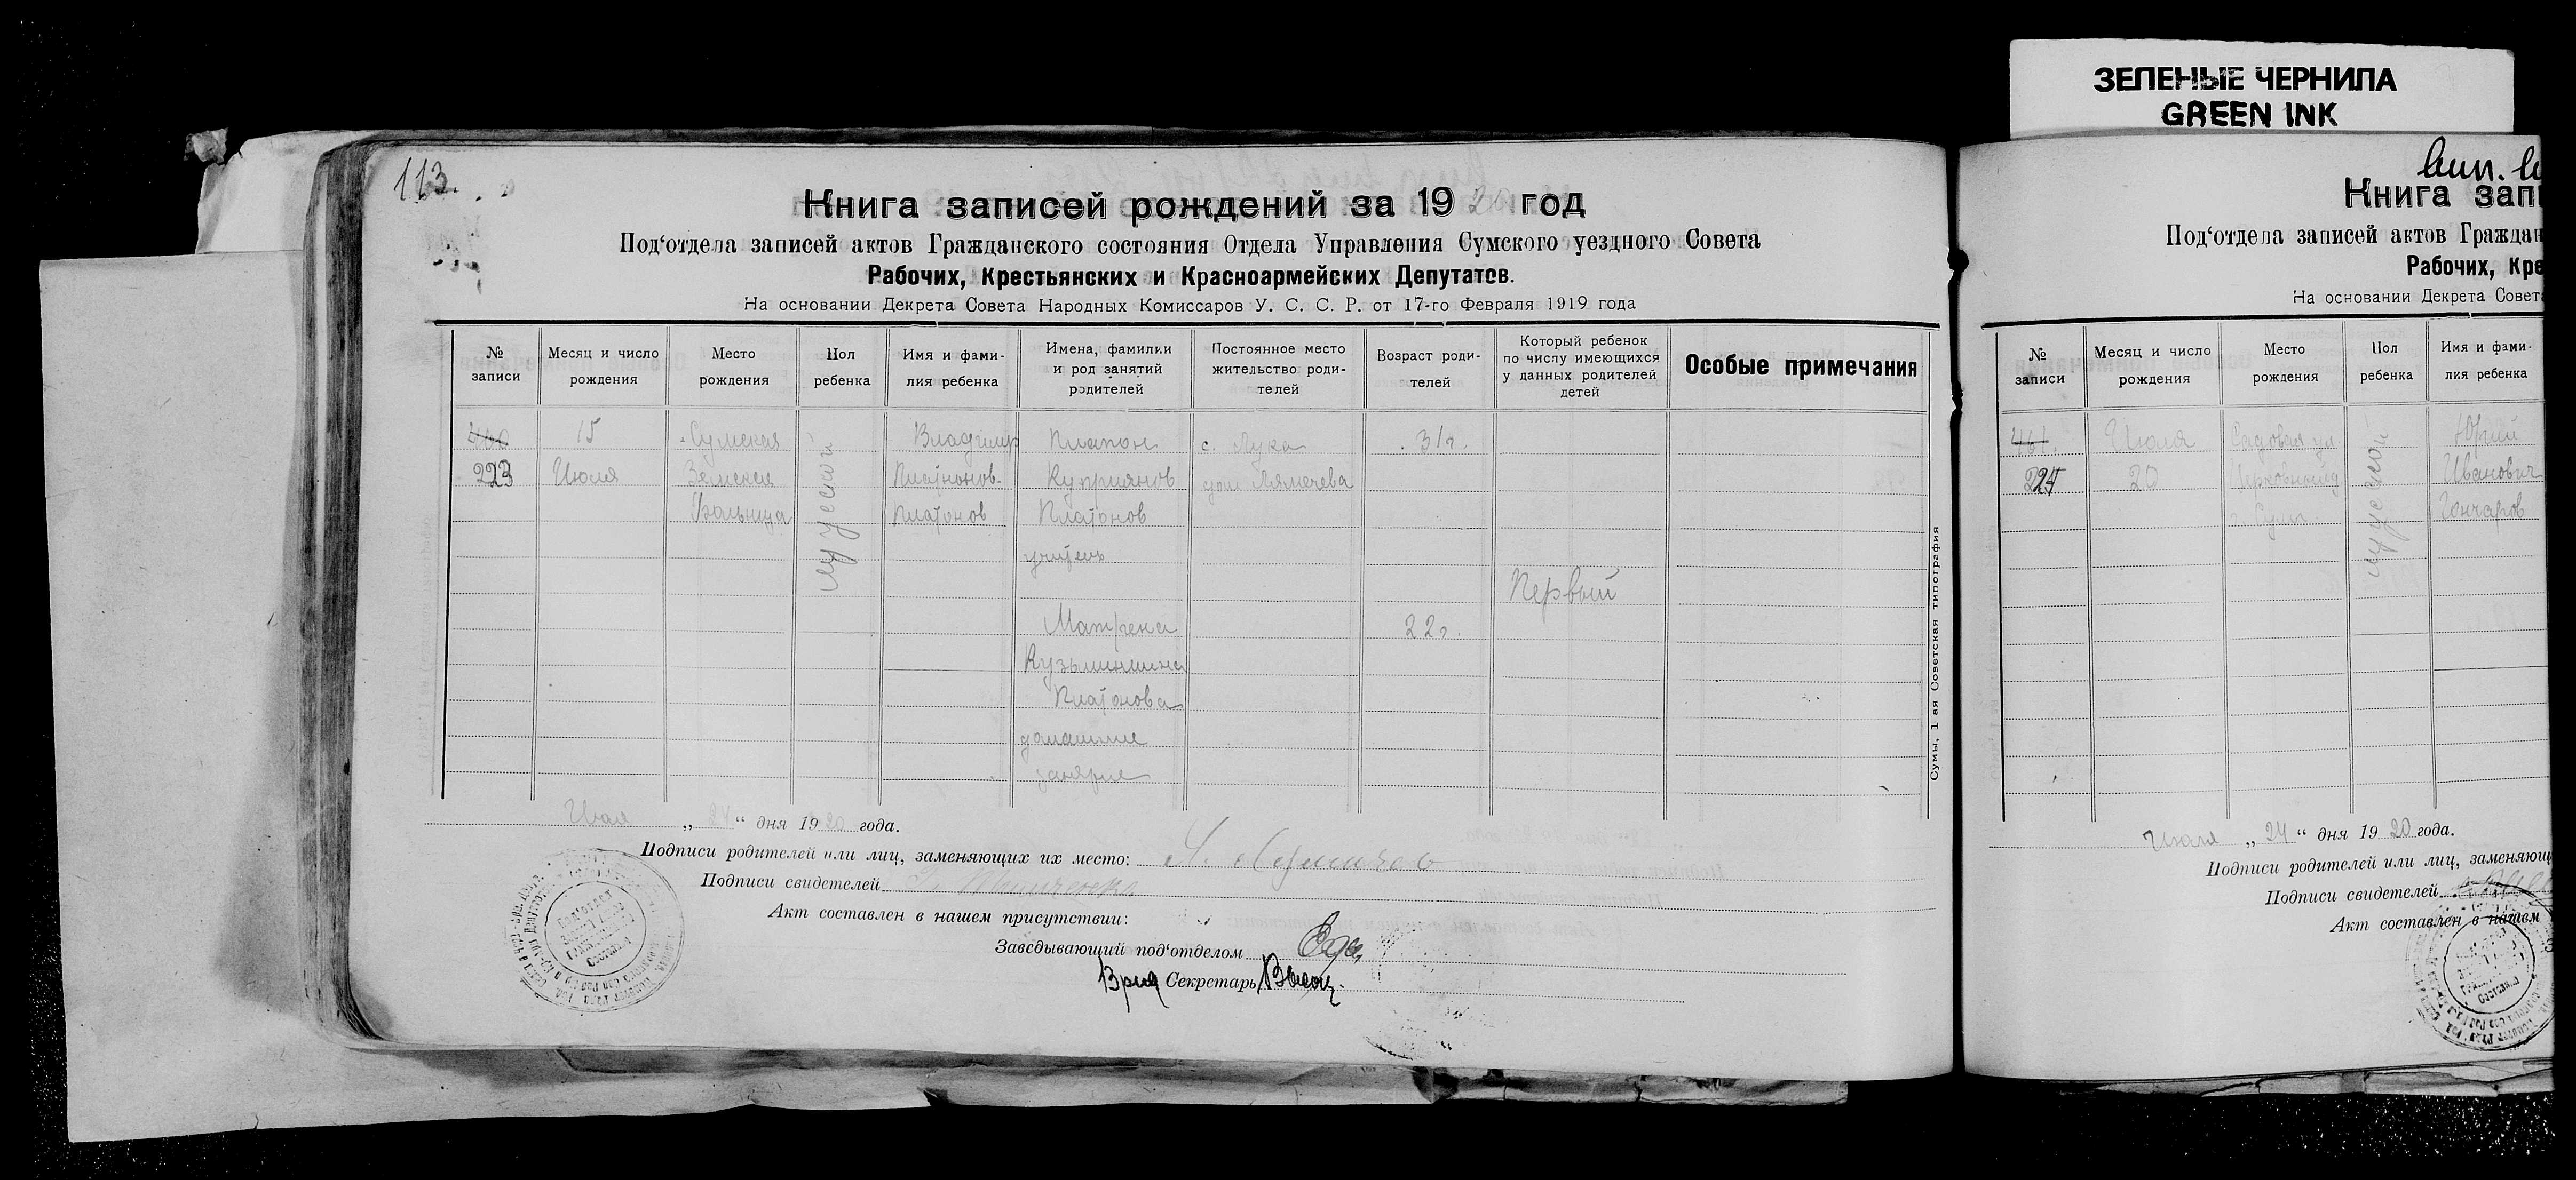 ЗЕЛЕНЫЕ ЧЕРНИЛА
GREEN INK
113.
Книга записей рождений за 1920 год
Под‘отдела записей актов Гражданского состояния Отдела Управления Сумского уездного Совета
Рабочих, Крестьянских и Красноармейских Депутатов.
На основании Декрета Совета Народных Комиссаров У. С. С. Р. от 17-го Февраля 1919 года
№ записи
Месяц и число рождения
Место рождения
Пол ребенка
Имя и фами-
лия ребенка
Имена, фамилии
и род занятий
родителей
Постоянное место
жительство роди-
телей
Возраст роди-
телей
Который ребенок
по числу имеющихся
у данных родителей
детей
Особые примечания
460
223
15
Июля
Сумская
Земская
Больница
мужской
Владимир
Платонов
Платонов
Куприянов
Платонов
учитель
Матрена
Платонова
домашние
занятие
с. Лука
31г.
22г.
Первый
Сумы, 1 ая Советская типография
„ 24 “ дня 1920 года.
Подписи родителей или лиц, заменяющих их место:
Подписи свидетелей
Акт составлен в нашем присутствии:
Заведывающий под‘отделом
Врид Секретарь
Книга запи
Под‘отдела записей актов Граждан
Рабочих, Кре
На основании Декрета Совета
№ записи
Месяц и число рождения
Место рождения
Пол ребенка
Имя и фами-
лия ребенка
461.
224
Июля
20
Садовая ул
г. Сумы
мужской
Юрий
Иванович
Гончаров
Июля „ 24 “ дня 1920 года.
Подписи родителей или лиц, заменяющ
Подписи свидетелей
Акт составлен в нашем